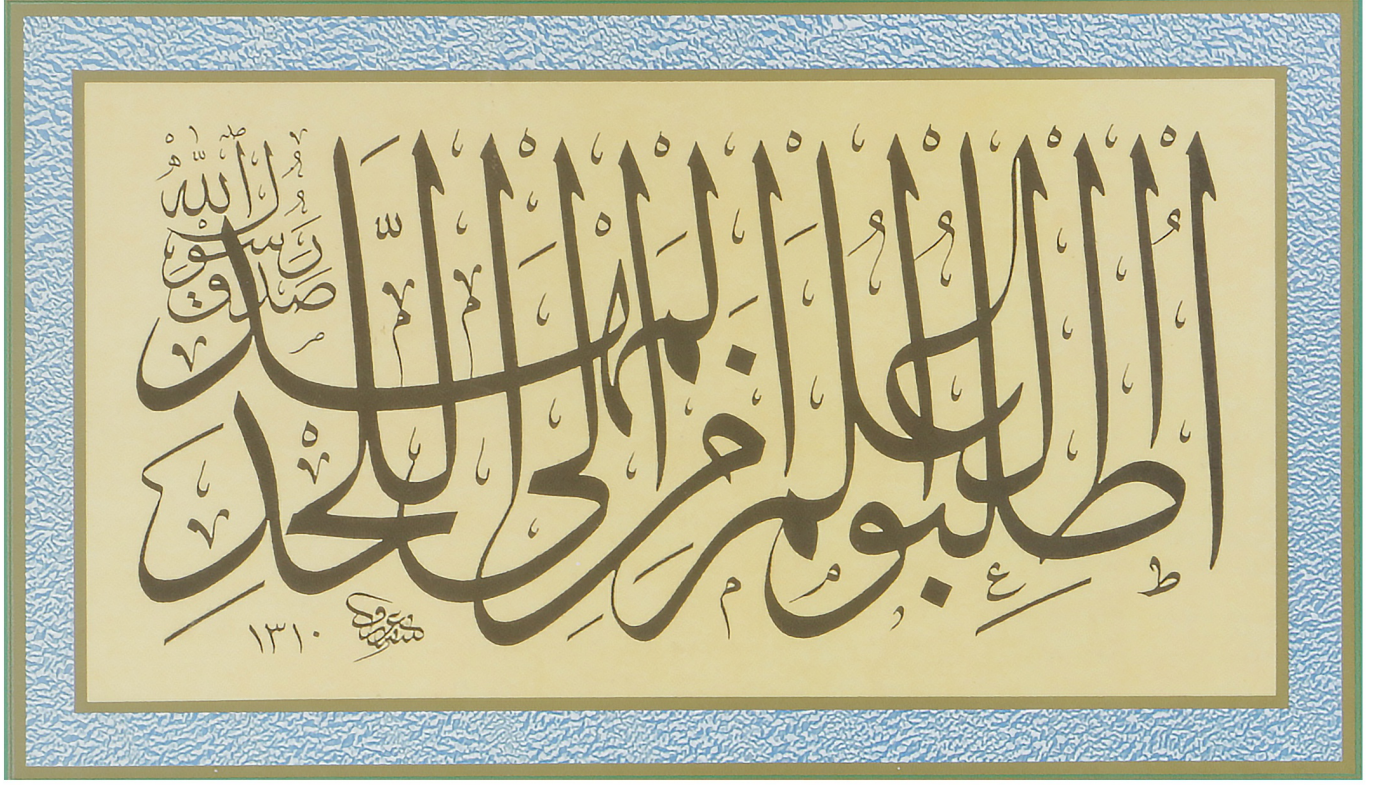 اُطْلُبُوا الْعِلْمَ مِنَ الْمَهْدِ إِلَى اللَّحْدِ
صدق رسول الله
١٣١٠